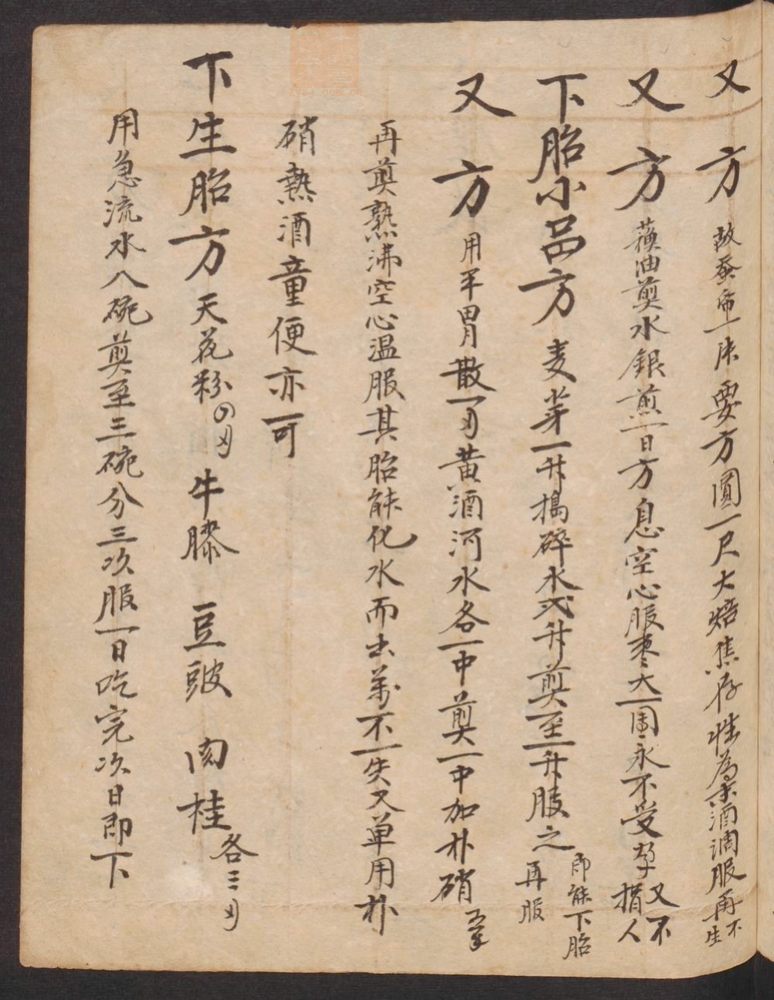 又方 故蚕布一片要方圓一尺大焙焦存性為末酒調服再不生
又方 蔴油煎水銀煎一日方息空心服棗大一圍永不受孕又不損人
下胎小品方 麦芽一升搗碎水弍升煎至一升服之即能下胎再服
又方 用平胃散一刄黄酒河水各一中煎一中加朴硝五錢
再煎熟沸空心温服其胎能化水而出萬不一失又單用朴
硝熱酒童便亦可
下生胎方 天花粉四刄 牛膝 豆豉 肉桂各三刄
用急流水八碗煎至三碗分三次服一日吃完次日即下